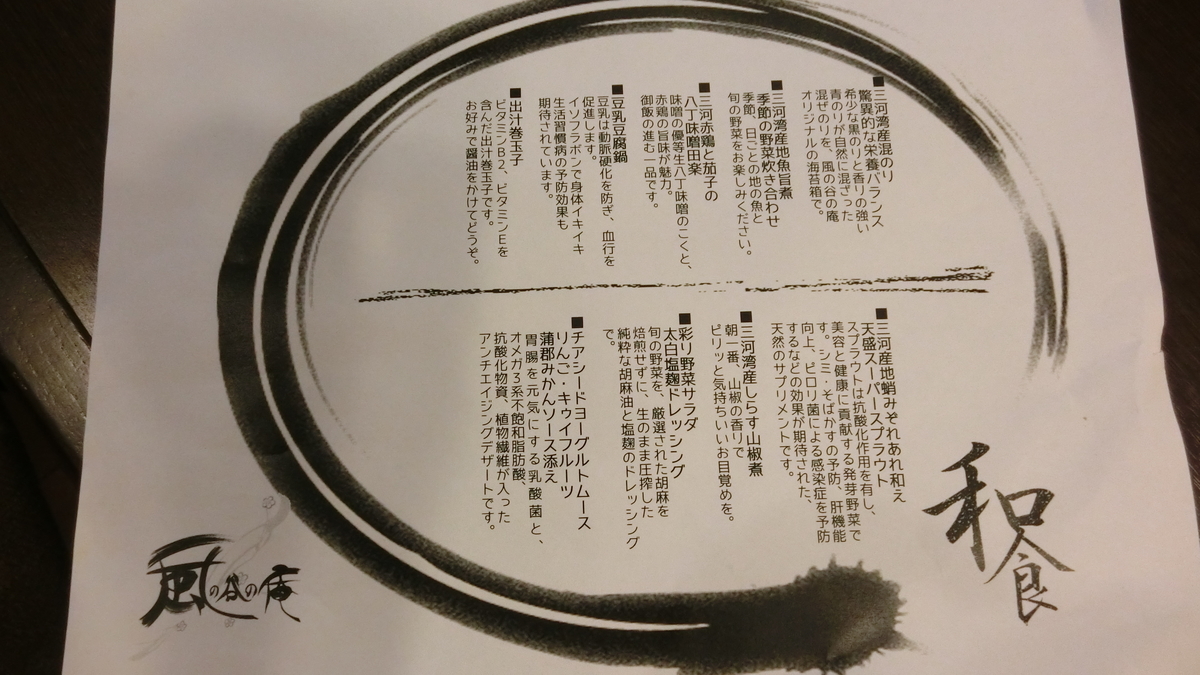 和食
■三河湾産混のり
驚異的な栄養バランス
希少な黒のりと香りの強い
青のりが自然に混ざった
混ぜのりを、風の谷の庵
オリジナルの海苔箱で。
■三河湾産地魚旨煮
季節の野菜炊き合わせ
季節、日ごとの地の魚と
旬の野菜をお楽しみください。
■三河赤鶏と茄子の
八丁味噌田楽
味噌の優等生八丁味噌のこくと、
赤鶏の旨味が魅力。
御飯の進む一品です。
■豆乳豆腐鍋
豆乳は動脈硬化を防ぎ、血行を
促進します。
イソフラボンで身体イキイキ
生活習慣病の予防効果も
期待されています。
■出汁巻玉子
ビタミンB2、ビタミンEを
含んだ出汁巻玉子です。
お好みで醤油をかけてどうぞ。
■三河産地蛸みぞれあれ和え
天盛スーパースプラウト
スプラウトは抗酸化作用を有し、
美容と健康に貢献する発芽野菜で
す。シミ・そばかすの予防、肝機能
向上、ピロリ菌による感染症を予防
するなどの効果が期待された、
天然のサプリメントです。
■三河湾産しらす山椒煮
朝一番、山椒の香りで
ピリッと気持ちいいお目覚めを。
■彩り野菜サラダ
太白塩麹ドレッシング
旬の野菜を、厳選された胡麻を
焙煎せずに、生のまま圧搾した
純粋な胡麻油と塩麹のドレッシング
で。
■チアシードヨーグルトムース
りんご・キゥイフルーツ
蒲郡みかんソース添え
胃腸を元気にする乳酸菌と、
オメガ3系不飽和脂肪酸、
抗酸化物資、植物繊維が入った
アンチエイジングデザートです。
風の谷の庵